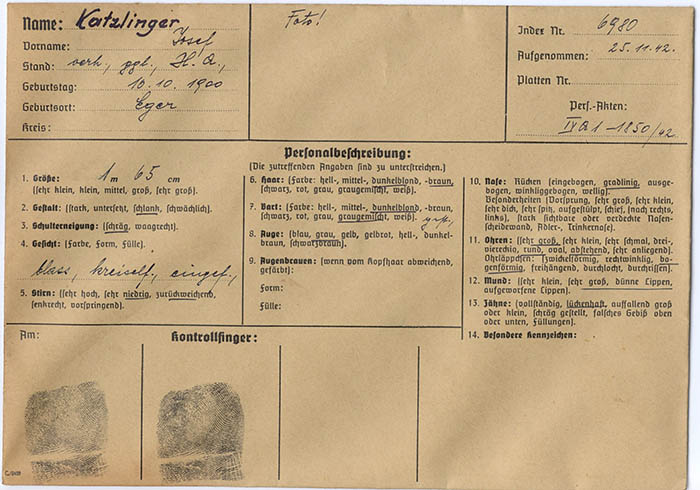 Name: Katzlinger
Vorname: Josef
Stand: verh., ggl., H. A.,
Geburtstag: 10.10.1900
Geburtsort: Eger
Kreis:
Foto!
Index Nr. 6980
Aufgenommen: 25.11.42.
Platten Nr.
Pers.-Akten:
IV A 1 - 1850/42
Personalbeschreibung:
(Die zutreffenden Angaben sind zu unterstreichen.)
1. Größe: 1 m 65 cm
(sehr klein, klein, mittel, groß, sehr groß).
2. Gestalt: (stark, untersetzt, schlank, schwächlich).
3. Schulterneigung: (schräg, waagrecht).
4. Gesicht: (Farbe, Form, Fülle).
blass, kreiself., eingef.,
5. Stirn: (sehr hoch, sehr niedrig, zurückweichend,
senkrecht, vorspringend).
6. Haar: (Farbe: hell-, mittel-, dunkelblond, -braun,
schwarz, rot, grau, graugemischt, weiß).
7. Bart: (Farbe: hell-, mittel-, dunkelblond, -braun,
schwarz, rot, grau, graugemischt, weiß).
8. Auge: (blau, grau, gelb, gelbrot, hell-, dunkel-
braun, schwarzbraun).
9. Augenbrauen: (wenn vom Kopfhaar abweichend,
gefärbt):
Form:
Fülle:
10. Nase: Rücken (eingebogen, gradlinig, ausge-
bogen, winkliggebogen, wellig).
Besonderheiten (Vorsprung, sehr groß, sehr klein,
sehr dick, sehr spitz, aufgestülpt, schief, [nach rechts,
links], stark sichtbare oder verdeckte Nasen-
scheidewand, Adler-, Trinkernase).
11. Ohren: (sehr groß, sehr klein, sehr schmal, drei-
viereckig, rund, oval, abstehend, sehr anliegend).
Ohrläppchen: (zwickelförmig, rechtwinklig, bo-
genförmig, freihängend, durchlocht, durchrissen).
12. Mund: (sehr klein, sehr groß, dünne Lippen,
aufgeworfene Lippen).
13. Zähne: (vollständig, lückenhaft, auffallend groß
oder klein, schräg gestellt, falsches Gebiß oben
oder unten, Füllungen).
14. Besondere Kennzeichen:
Am:
Kontrollfinger: